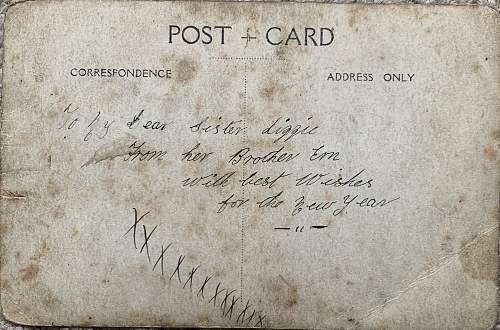 POST CARD
CORRESPONDENCE
ADDRESS ONLY
To My Dear Sister Liggie
From her Brother Ern
with best Wishes
for the New Year
— " —
XXXXXXXXXXXXX